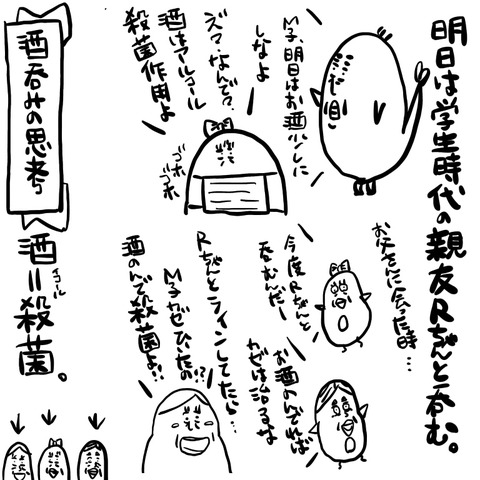 明日は学生時代の親友Rちゃんと呑む。
M子、明日はお酒少しに
しなよ
ズマ、なんで?
酒はアルコール
殺菌作用よ
ゴホ
ゴホ
お父さんに会った時…
今度Rちゃんと
呑むんだー
お酒のんでれば
かぜは治るな
Rちゃんとラインしてたら…
M子かぜひいたの!?
酒のんで殺菌よ!!
酒呑みの思考
酒=殺菌。
イコール